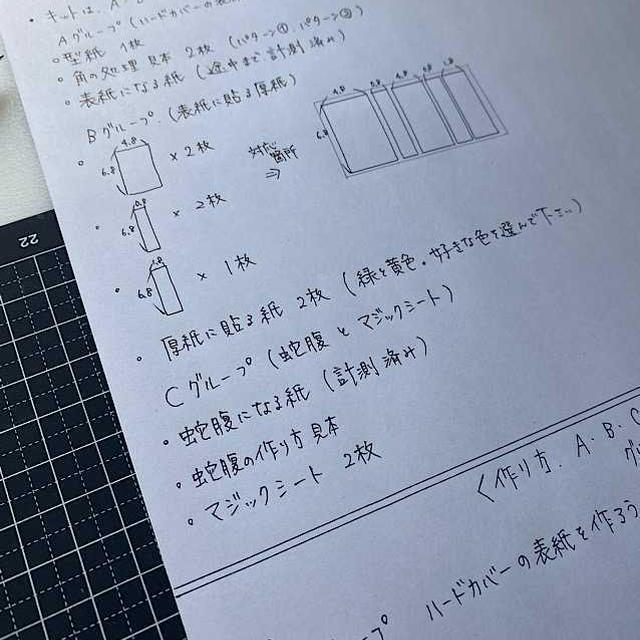 ・キットは、A・B
Aグループ(ハードカバーの表紙
○型紙 1枚
・角の処理見本 2枚 (パターン①、パターン②)
・表紙になる紙 (途中まで計測済み)
Bグループ.(表紙に貼る厚紙)
4.8
6.8
× 2枚
対応箇所
⇒
4.8 0.8 0.8
6.8
0.8
6.8
× 2枚
6.8
× 1枚
・厚紙に貼る紙 2枚 (緑と黄色・好きな色を選んで下さい)
Cグループ (蛇腹とマジックシート)
・蛇腹になる紙 (計測済み)
・蛇腹の作り方見本
・マジックシート 2枚
<作り方. A・B・C
ハードカバーの表紙を作ろう
22